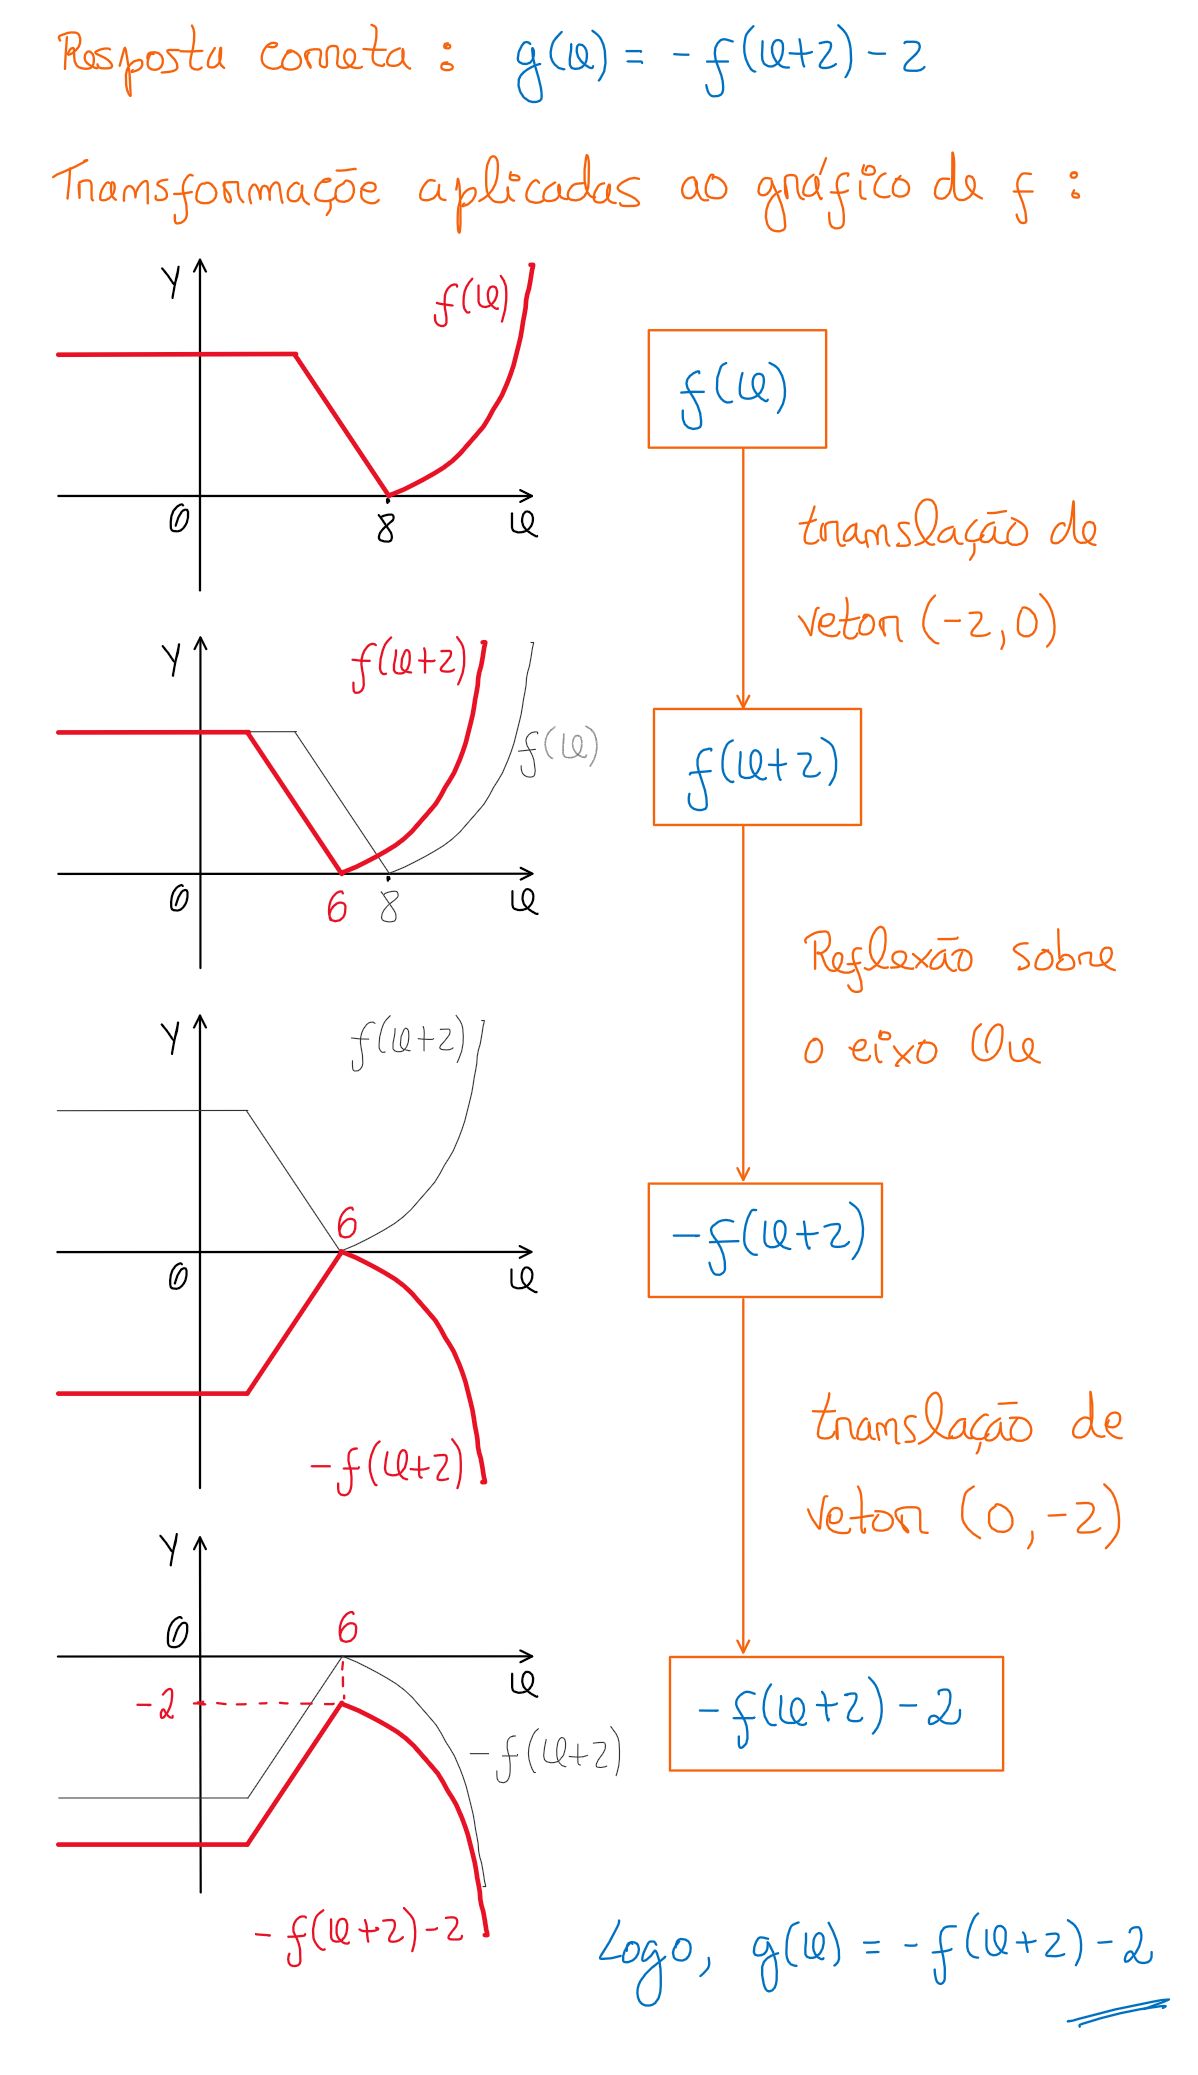 Resposta correta : g(x) = -f(x+2) - 2
Transformaçõe aplicadas ao gráfico de f :
y
f(x)
0
8
x
f(x)
translação de
vetor (-2,0)
y
f(x+2)
f(x)
0
6
8
x
f(x+2)
Reflexão sobre
o eixo Ox
y
f(x+2)
6
0
x
-f(x+2)
-f(x+2)
translação de
vetor (0,-2)
y
0
6
x
-2
-f(x+2)
-f(x+2)-2
-f(x+2)-2
Logo, g(x) = -f(x+2)-2